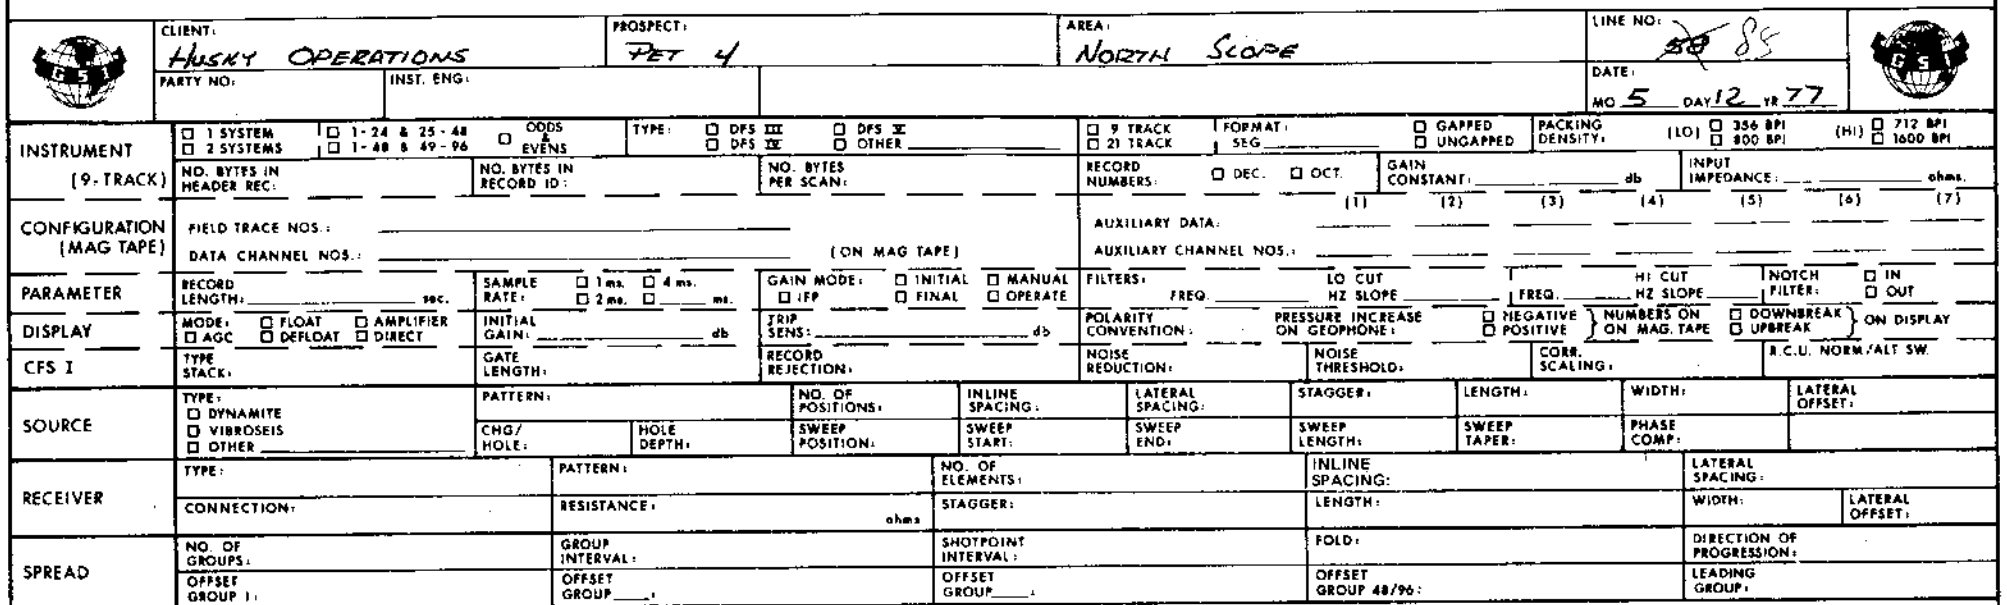 CLIENT: PROSPECT: AREA: LINE NO:
HUSKY OPERATIONS PET 4 NORTH SLOPE 58 85
PARTY NO: INST. ENG: DATE:
MO 5 DAY 12 YR 77
GSI GSI
INSTRUMENT (9-TRACK)
☐ 1 SYSTEM ☐ 1-24 & 25-48 ☐ ODDS & EVENS TYPE: ☐ DFS III ☐ DFS V ☐ 9 TRACK FORMAT: ☐ GAPPED PACKING DENSITY: (LO) ☐ 356 BPI (HI) ☐ 712 BPI
☐ 2 SYSTEMS ☐ 1-48 & 49-96 ☐ DFS IV ☐ OTHER ☐ 21 TRACK SEG ☐ UNGAPPED ☐ 800 BPI ☐ 1600 BPI
NO. BYTES IN HEADER REC: NO. BYTES IN RECORD ID: NO. BYTES PER SCAN: RECORD NUMBERS: ☐ DEC. ☐ OCT. GAIN CONSTANT: db INPUT IMPEDANCE: ohms.
CONFIGURATION (MAG TAPE)
(1) (2) (3) (4) (5) (6) (7)
FIELD TRACE NOS.: AUXILIARY DATA:
DATA CHANNEL NOS.: (ON MAG TAPE) AUXILIARY CHANNEL NOS.:
PARAMETER
RECORD LENGTH: sec. SAMPLE RATE: ☐ 1 ms. ☐ 4 ms. ☐ 2 ms. ☐ ms. GAIN MODE: ☐ INITIAL ☐ MANUAL ☐ IFP ☐ FINAL ☐ OPERATE FILTERS: FREQ. LO CUT HZ SLOPE FREQ. HI CUT HZ SLOPE NOTCH FILTER: ☐ IN ☐ OUT
DISPLAY
MODE: ☐ FLOAT ☐ AMPLIFIER ☐ AGC ☐ DEFLOAT ☐ DIRECT INITIAL GAIN: db TRIP SENS: db POLARITY CONVENTION: PRESSURE INCREASE ON GEOPHONE: ☐ NEGATIVE ☐ POSITIVE } NUMBERS ON ON MAG. TAPE ☐ DOWNBREAK ☐ UPBREAK } ON DISPLAY
CFS I
TYPE STACK: GATE LENGTH: RECORD REJECTION: NOISE REDUCTION: NOISE THRESHOLD: CORR. SCALING: R.C.U. NORM/ALT SW.
SOURCE
TYPE: ☐ DYNAMITE ☐ VIBROSEIS ☐ OTHER
PATTERN: NO. OF POSITIONS: INLINE SPACING: LATERAL SPACING: STAGGER: LENGTH: WIDTH: LATERAL OFFSET:
CHG/ HOLE: HOLE DEPTH: SWEEP POSITION: SWEEP START: SWEEP END: SWEEP LENGTH: SWEEP TAPER: PHASE COMP:
RECEIVER
TYPE: PATTERN: NO. OF ELEMENTS: INLINE SPACING: LATERAL SPACING:
CONNECTION: RESISTANCE: ohms STAGGER: LENGTH: WIDTH: LATERAL OFFSET:
SPREAD
NO. OF GROUPS: GROUP INTERVAL: SHOTPOINT INTERVAL: FOLD: DIRECTION OF PROGRESSION:
OFFSET GROUP 1: OFFSET GROUP : OFFSET GROUP : OFFSET GROUP 48/96: LEADING GROUP: